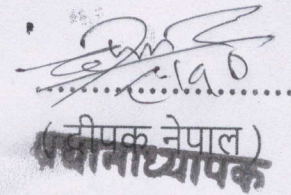 ( दीपक नेपाल )
प्रधानाध्यापक